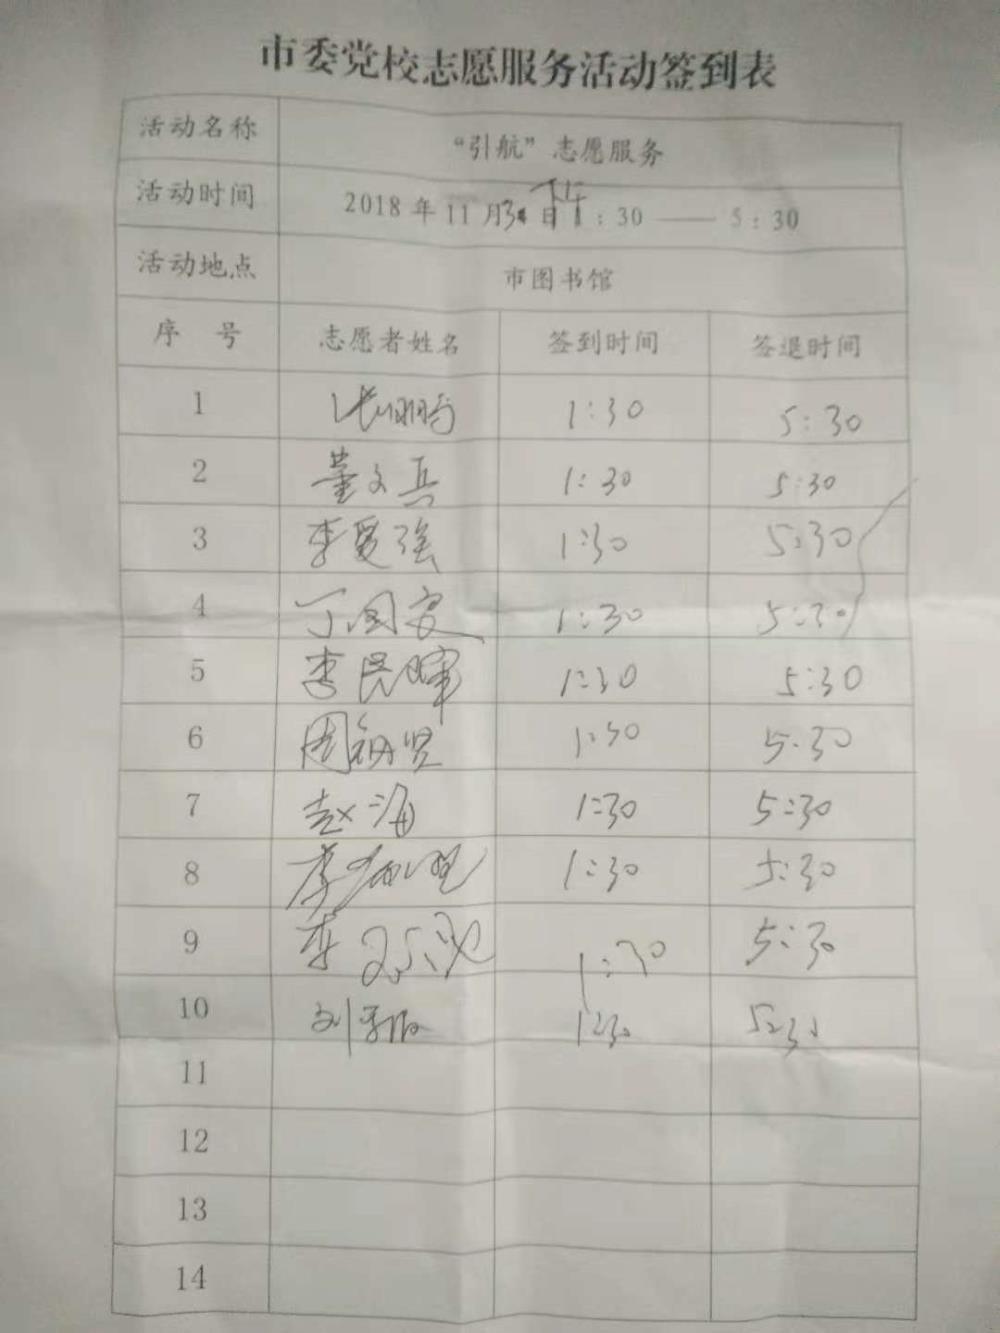 市委党校志愿服务活动签到表
活动名称 “引航”志愿服务
活动时间 2018年11月30日下午1:30——5:30
活动地点 市图书馆
序 号 志愿者姓名 签到时间 签退时间
1 张鹏 1:30 5:30
2 董文兵 1:30 5:30
3 李爱强 1:30 5:30
4 丁国安 1:30 5:30
5 李民晖 1:30 5:30
6 周 1:30 5:30
7 赵海 1:30 5:30
8 李 1:30 5:30
9 李 1:30 5:30
10 刘 1:30 5:30
11
12
13
14